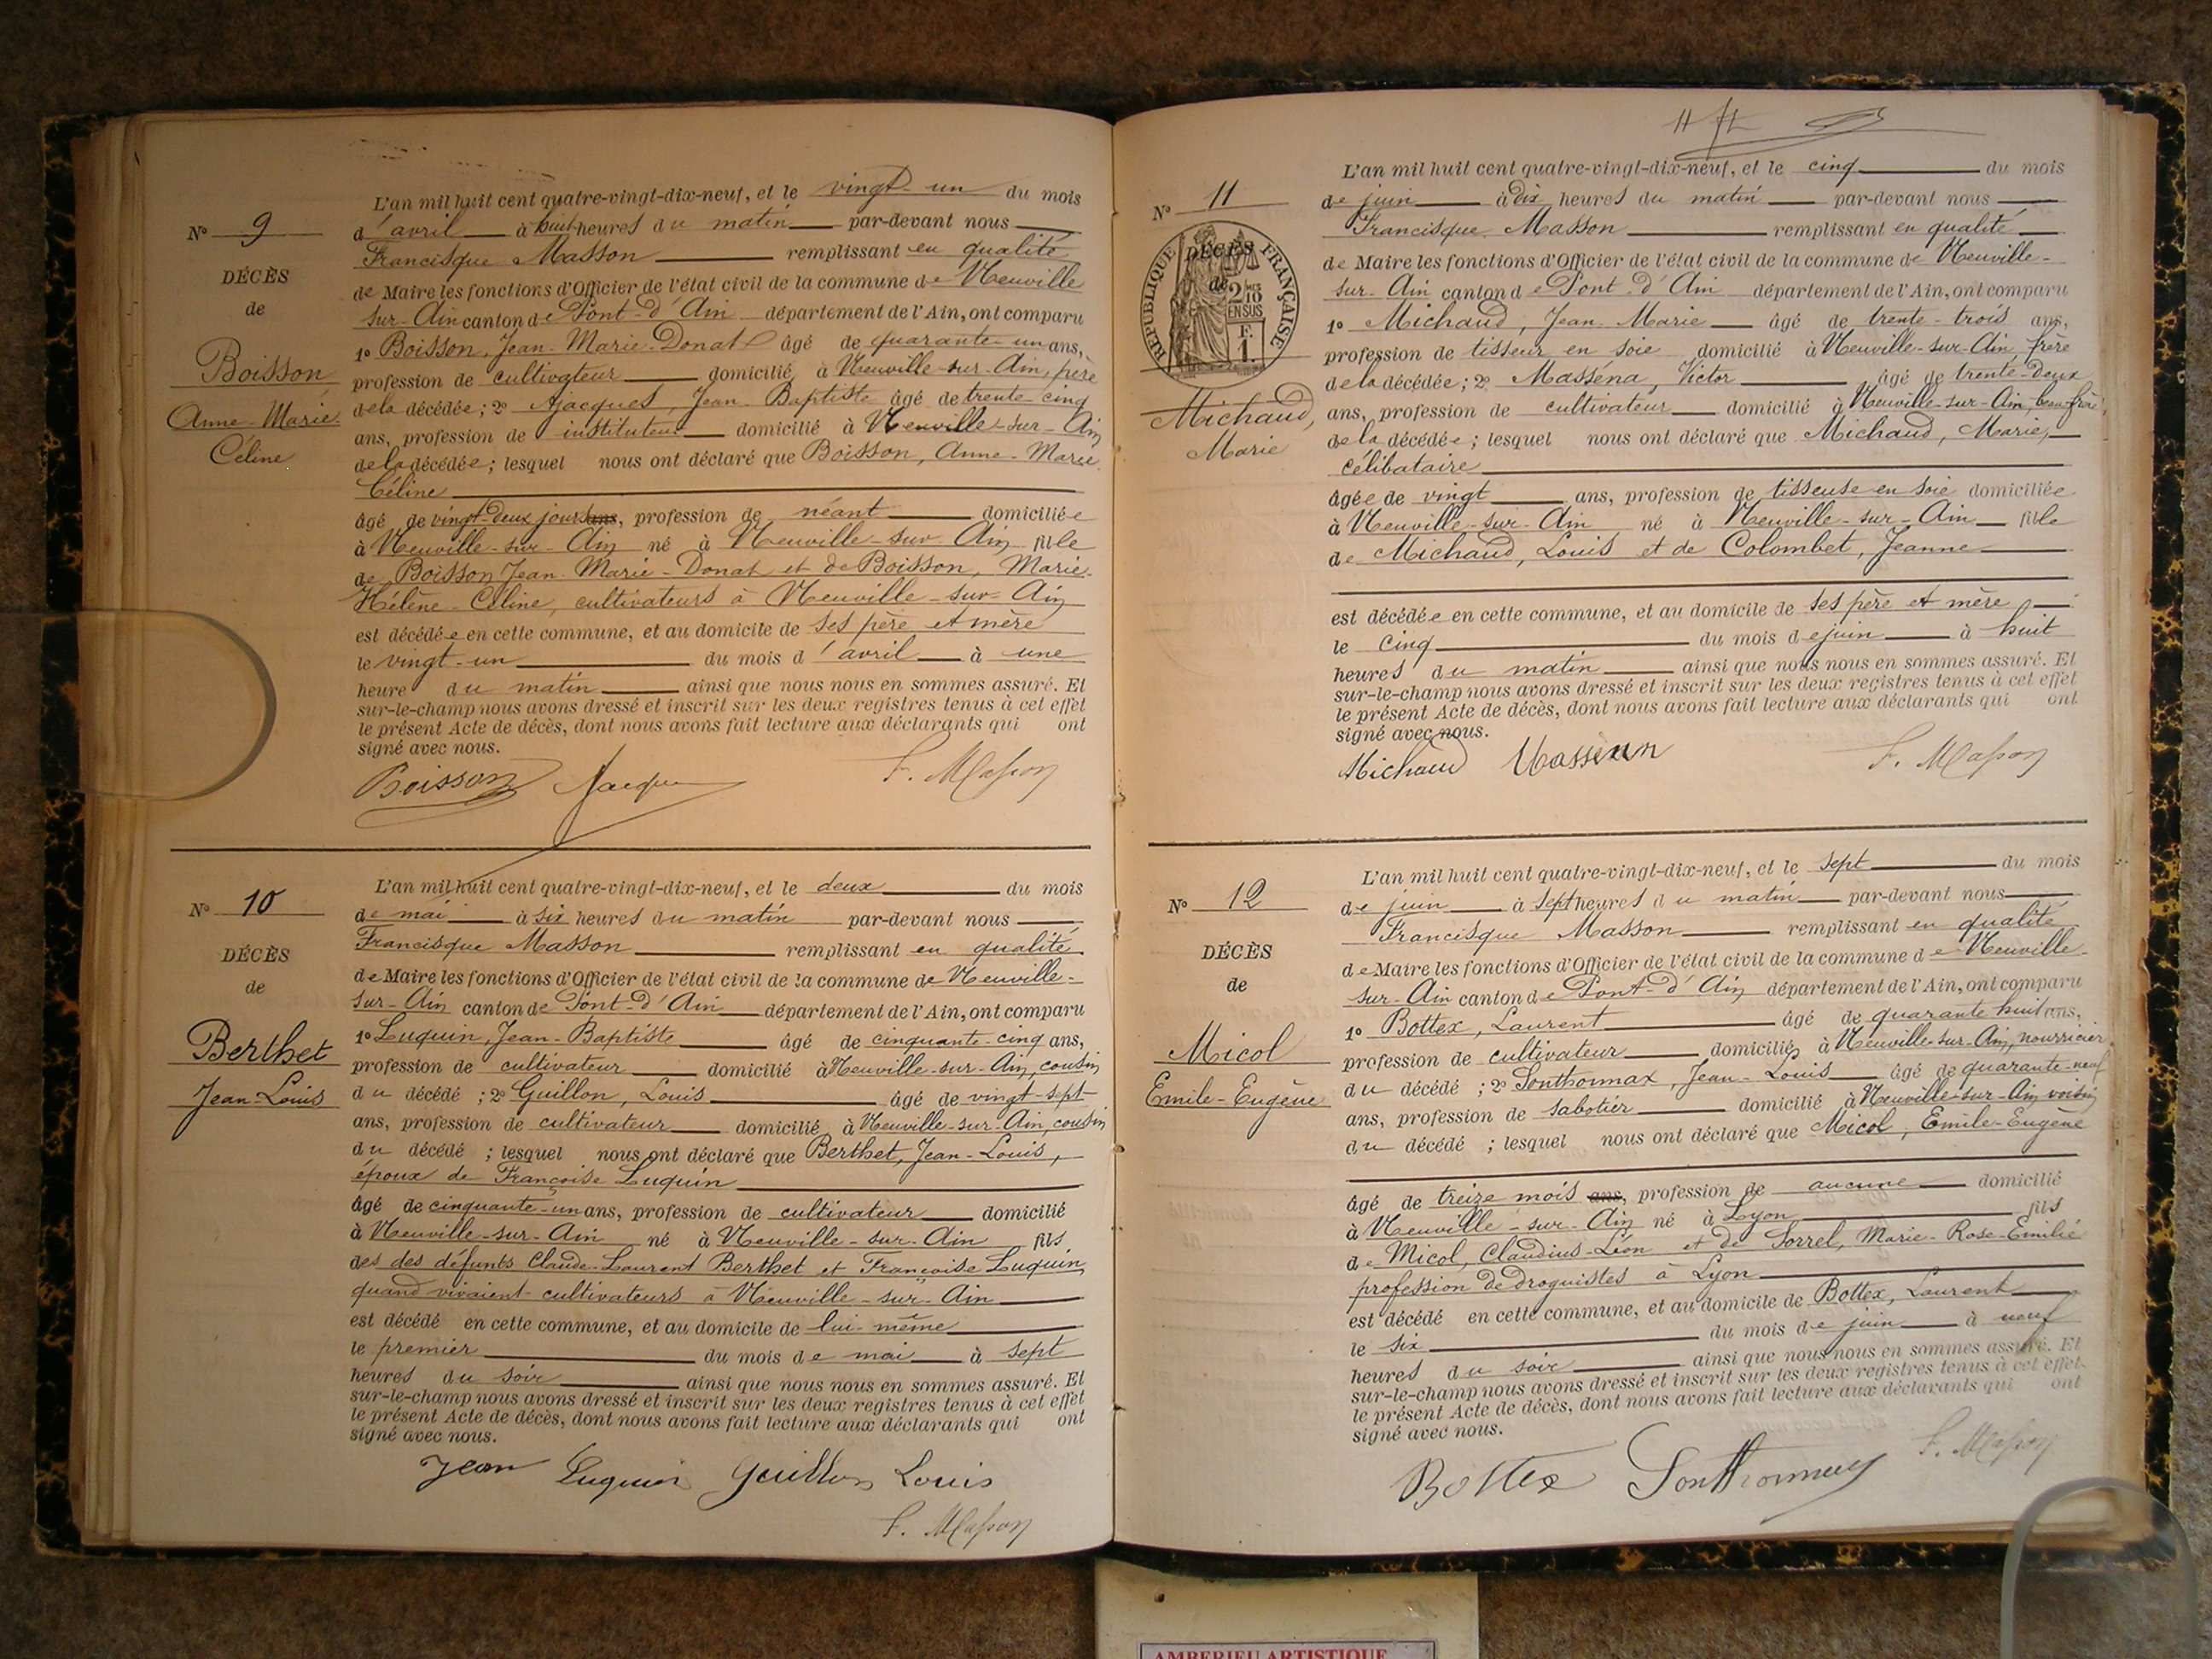 N° 9
DÉCÈS
de
Boisson
Anne-Marie
Céline
L'an mil huit cent quatre-vingt-dix-neuf, et le vingt-un du mois
d'avril à huit heures du matin par-devant nous
Francisque Masson remplissant en qualité
de Maire les fonctions d'Officier de l'état civil de la commune de Neuville
sur-Ain canton de Pont-d'Ain département de l'Ain, ont comparu
1° Boisson, Jean-Marie-Donat âgé de quarante-un ans,
profession de cultivateur domicilié à Neuville-sur-Ain, père
de la décédée; 2° Ajacques, Jean Baptiste âgé de trente-cinq
ans, profession de instituteur domicilié à Neuville-sur-Ain
de la décédée; lesquel nous ont déclaré que Boisson, Anne-Marie
Céline
âgé de vingt-deux jours ans, profession de néant domiciliée
à Neuville-sur-Ain né à Neuville-sur Ain fille
de Boisson Jean-Marie-Donat et de Boisson, Marie-
Hélène-Céline, cultivateurs à Neuville-sur-Ain
est décédée en cette commune, et au domicile de ses père et mère
le vingt-un du mois d'avril à une
heure du matin ainsi que nous nous en sommes assuré. Et
sur-le-champ nous avons dressé et inscrit sur les deux registres tenus à cet effet
le présent Acte de décès, dont nous avons fait lecture aux déclarants qui ont
signé avec nous.
Boisson F. Masson
N° 10
DÉCÈS
de
Berthet
Jean-Louis
L'an mil huit cent quatre-vingt-dix-neuf, et le deux du mois
de mai à six heures du matin par-devant nous
Francisque Masson remplissant en qualité
de Maire les fonctions d'Officier de l'état civil de la commune de Neuville-
sur-Ain canton de Pont-d'Ain département de l'Ain, ont comparu
1° Luquin, Jean-Baptiste âgé de cinquante-cinq ans,
profession de cultivateur domicilié à Neuville-sur-Ain, cousin
du décédé ; 2° Guillon, Louis âgé de vingt-sept
ans, profession de cultivateur domicilié à Neuville-sur-Ain, cousin
du décédé ; lesquel nous ont déclaré que Berthet, Jean-Louis,
époux de Françoise Luquin
âgé de cinquante-un ans, profession de cultivateur domicilié
à Neuville-sur-Ain né à Neuville-sur-Ain fils
des des défunts Claude-Laurent Berthet et Françoise Luquin
quand vivaient cultivateurs à Neuville-sur-Ain
est décédé en cette commune, et au domicile de lui-même
le premier du mois de mai à sept
heures du soir ainsi que nous nous en sommes assuré. Et
sur-le-champ nous avons dressé et inscrit sur les deux registres tenus à cet effet
le présent Acte de décès, dont nous avons fait lecture aux déclarants qui ont
signé avec nous.
Jean Luquin Guillon Louis
F. Masson
11
N° 11
RÉPUBLIQUE FRANÇAISE
DÉCÈS
de
2/10
EN SUS
F.
1.
Michaud,
Marie
L'an mil huit cent quatre-vingt-dix-neuf, et le cinq du mois
de juin à dix heures du matin par-devant nous
Francisque Masson remplissant en qualité
de Maire les fonctions d'Officier de l'état civil de la commune de Neuville-
sur-Ain canton de Pont-d'Ain département de l'Ain, ont comparu
1° Michaud, Jean-Marie âgé de trente-trois ans,
profession de tisseur en soie domicilié à Neuville-sur-Ain, frère
de la décédée; 2° Masséna, Victor âgé de trente-deux
ans, profession de cultivateur domicilié à Neuville-sur-Ain, beau-frère,
de la décédée; lesquel nous ont déclaré que Michaud, Marie,
célibataire
âgée de vingt ans, profession de tisseuse en soie domiciliée
à Neuville-sur-Ain né à Neuville-sur-Ain fille
de Michaud, Louis et de Colombet, Jeanne
est décédée en cette commune, et au domicile de ses père et mère
le cinq du mois de juin à huit
heures du matin ainsi que nous nous en sommes assuré. Et
sur-le-champ nous avons dressé et inscrit sur les deux registres tenus à cet effet
le présent Acte de décès, dont nous avons fait lecture aux déclarants qui ont
signé avec nous.
Michaud Masséna F. Masson
N° 12
DÉCÈS
de
Micol
Emile-Eugène
L'an mil huit cent quatre-vingt-dix-neuf, et le sept du mois
de juin à sept heures du matin par-devant nous
Francisque Masson remplissant en qualité
de Maire les fonctions d'Officier de l'état civil de la commune de Neuville-
sur-Ain canton de Pont-d'Ain département de l'Ain, ont comparu
1° Bottex, Laurent âgé de quarante huit ans,
profession de cultivateur domicilié à Neuville-sur-Ain, nourricier
du décédé ; 2° Sonthonnax, Jean-Louis âgé de quarante-neuf
ans, profession de sabotier domicilié à Neuville-sur-Ain voisin
du décédé ; lesquel nous ont déclaré que Micol, Emile-Eugène
âgé de treize mois ans, profession de aucune domicilié
à Neuville-sur-Ain né à Lyon fils
de Micol, Claudius-Léon et de Sorrel, Marie-Rose-Emilie
profession de droguistes à Lyon
est décédé en cette commune, et au domicile de Bottex, Laurent
le six du mois de juin à neuf
heures du soir ainsi que nous nous en sommes assuré. Et
sur-le-champ nous avons dressé et inscrit sur les deux registres tenus à cet effet
le présent Acte de décès, dont nous avons fait lecture aux déclarants qui ont
signé avec nous.
Bottex Sonthonnax F. Masson
AMBERIEU ARTISTIQUE